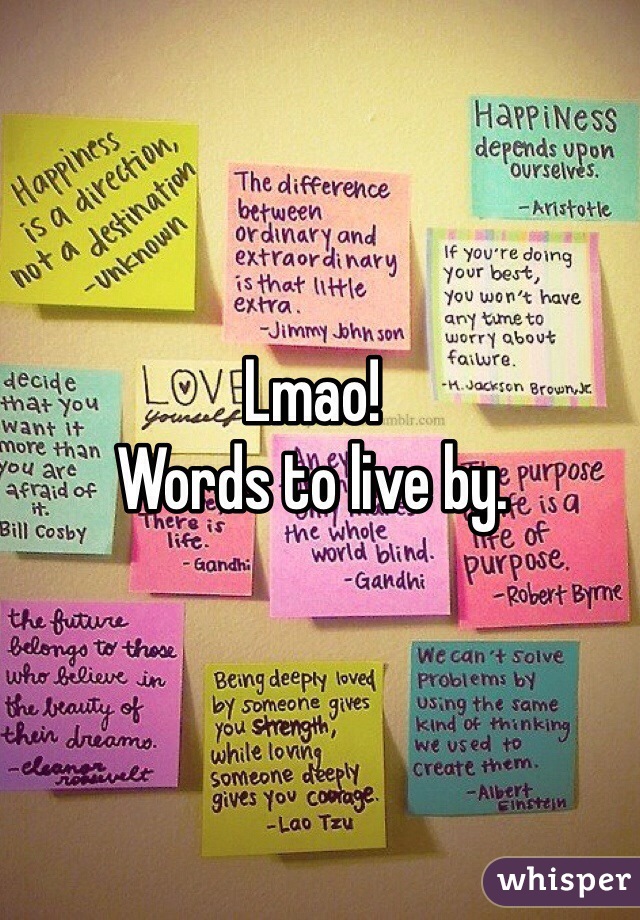 Happiness
is a direction,
not a destination
-unknown
The difference
between
ordinary and
extraordinary
is that little
extra.
-Jimmy Johnson
HAPPiNESS
depends upon
ourselves.
-Aristotle
If you're doing
your best,
you won't have
any time to
worry about
failure.
-H. Jackson Brown, Jr.
decide
that you
want it
more than
you are
afraid of
it.
Bill Cosby
LOVE
yourself
Lmao!
Words to live by.
There is
life.
-Gandhi
An
the whole
world blind.
-Gandhi
purpose
is a
life of
purpose.
-Robert Byrne
the future
belongs to those
who believe in
the beauty of
their dreams.
-eleanor
roosevelt
Being deeply loved
by someone gives
you strength,
while loving
someone deeply
gives you courage.
-Lao Tzu
We can't solve
problems by
using the same
kind of thinking
we used to
create them.
-Albert
Einstein
whisper